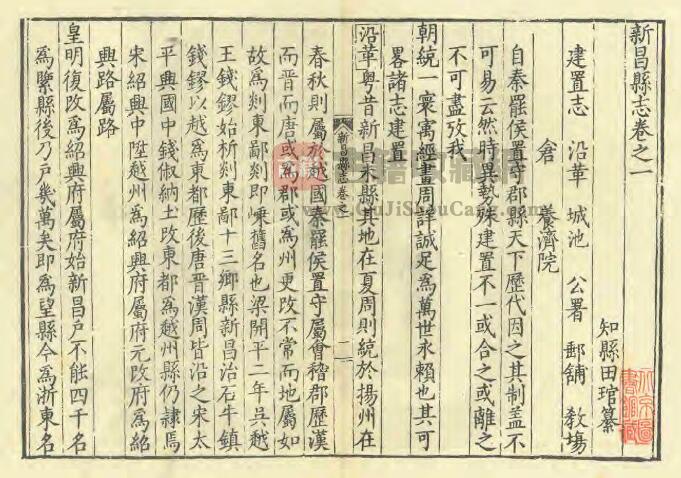 新昌縣志卷之一
知縣田琯纂
建置志 沿革 城池 公署 郵鋪 教場
倉 養濟院
自秦罷侯置守郡縣天下歷代因之其制盖不
可易云然時異勢殊建置不一或合之或離之
不可盡攷我
朝統一寰寓經畫周詳誠足爲萬世永賴也其可
畧諸志建置
沿革粤昔新昌未縣其地在夏周則統於揚州在
新昌縣志卷之一
二
春秋則屬於越國秦罷侯置守屬會稽郡歷漢
而晋而唐或爲郡或爲州更改不常而地屬如
故爲剡東鄙剡即嵊舊名也梁開平二年吳越
王錢鏐始析剡東鄙十三鄉縣新昌治石牛鎮
錢鏐以越爲東都歷後唐晋漢周皆沿之宋太
平興國中錢俶納土改東都爲越州縣仍隸焉
宋紹興中陞越州爲紹興府屬府元改府爲紹
興路屬路
皇明復改爲紹興府屬府始新昌戶不能四千名
爲緊縣後乃戶幾萬矣即爲望縣今爲浙東名
古籍收藏
www.GuJiShouCang.com